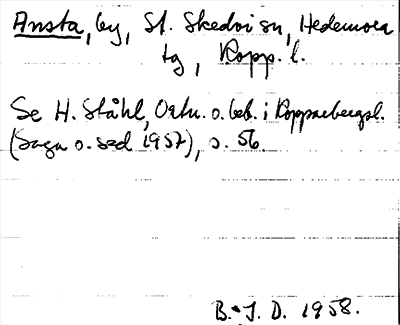 Ansta, by, St. Skedvi sn, Hedemora
tg, Kopp. l.
Se H. Ståhl, Ortn. o. beb. i Kopparbergsl.
(Saga o. sed 1957), s. 56.
B. J. D. 1958.